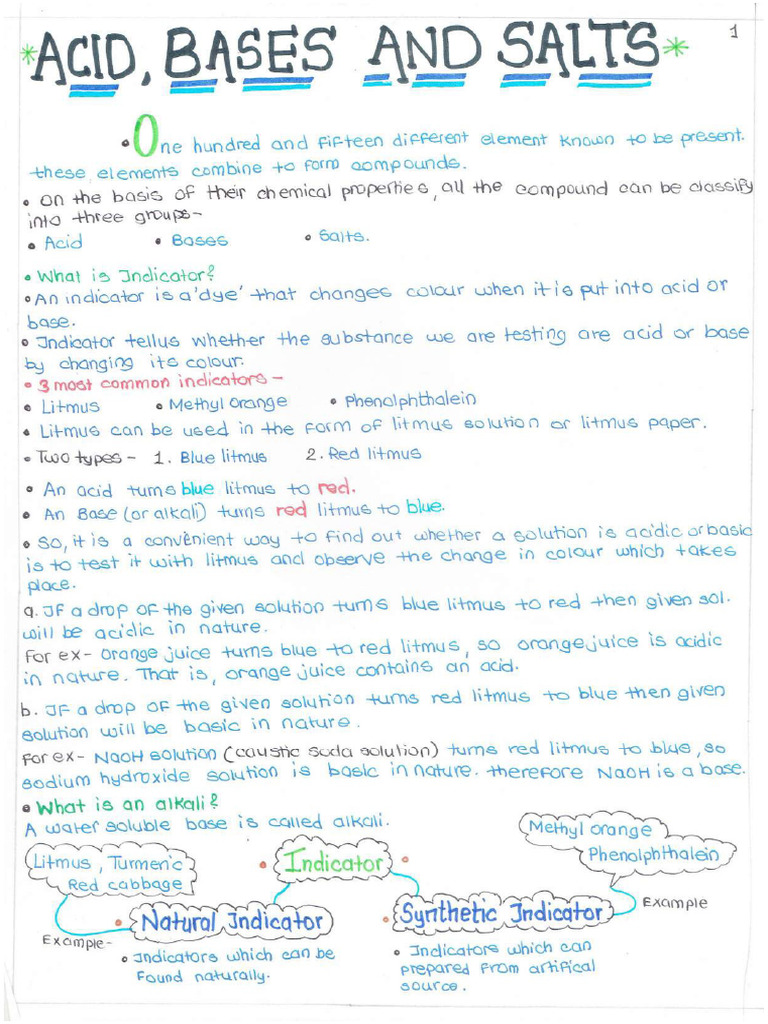 1
*ACID, BASES AND SALTS*
• One hundred and fifteen different element known to be present.
these, elements combine to form compounds.
• On the basis of their chemical properties, all the compound can be classify
into three groups-
• Acid • Bases • Salts.
• What is Indicator?
• An indicator is a 'dye' that changes colour when it is put into acid or
base.
• Indicator tellus whether the substance we are testing are acid or base
by changing its colour.
• 3 most common indicators -
• Litmus • Methyl orange • Phenolphthalein
• Litmus can be used in the form of litmus solution or litmus paper.
• Two types - 1. Blue litmus 2. Red litmus
• An acid turns blue litmus to red.
• An Base (or alkali) turns red litmus to blue.
• So, it is a convenient way to find out whether a solution is acidic or basic
is to test it with litmus and observe the change in colour which takes
place.
a. If a drop of the given solution turns blue litmus to red then given sol.
will be acidic in nature.
For ex- Orange juice turns blue to red litmus, so orange juice is acidic
in nature. That is, orange juice contains an acid.
b. If a drop of the given solution turns red litmus to blue then given
solution will be basic in nature.
For ex- NaOH solution (caustic soda solution) turns red litmus to blue, so
sodium hydroxide solution is basic in nature. therefore NaOH is a base.
• What is an alkali?
A water soluble base is called alkali.
Litmus, Turmeric
Red cabbage
• Indicator •
Methyl orange
Phenolphthalein
Example-
• Natural Indicator
• Indicators which can be
found naturally.
• Synthetic Indicator
Example
• Indicators which can
prepared from artifical
source.